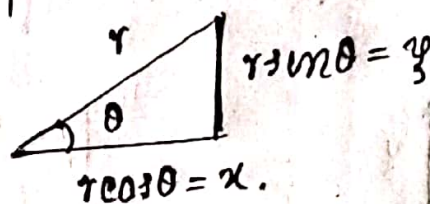 r
r sinθ = y
θ
r cosθ = x.